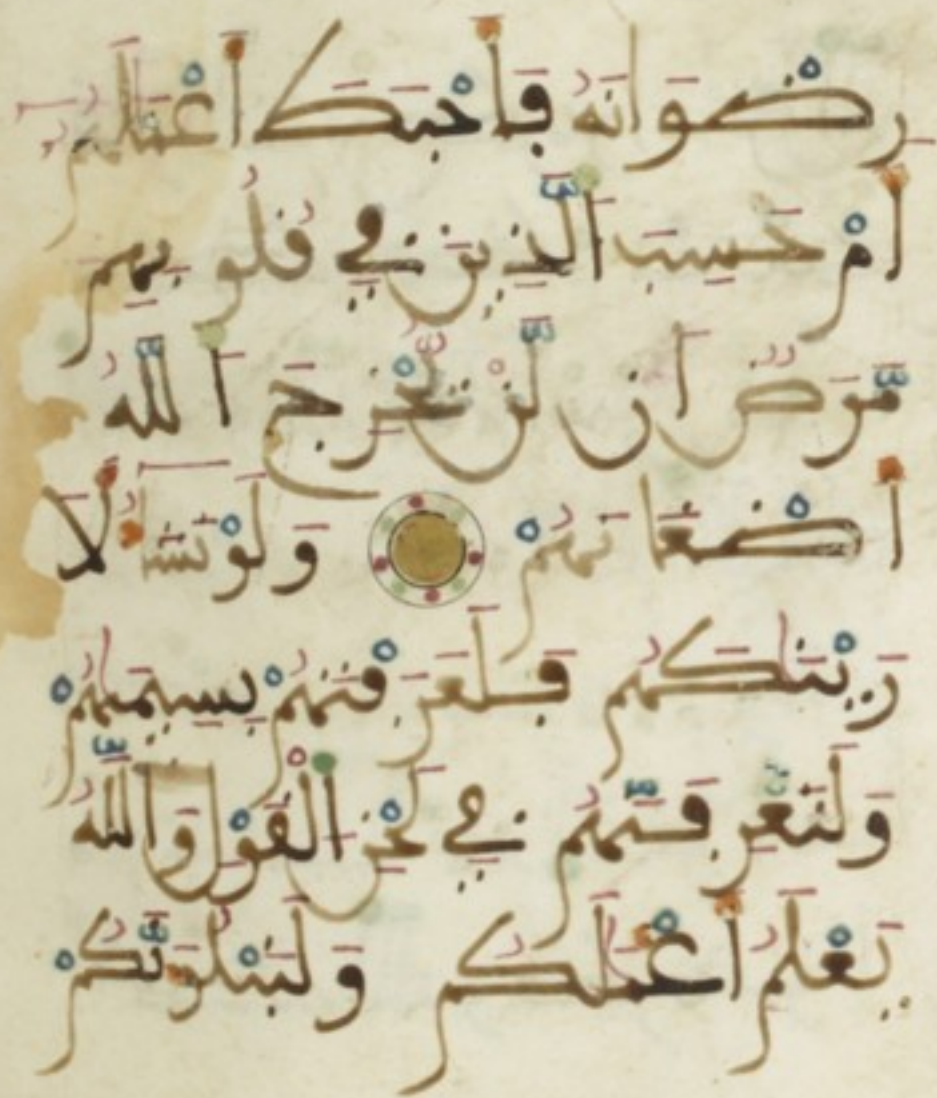 رِضْوَانَهُ فَأَحْبَطَ أَعْمَٰلَهُمُ
أَمْ حَسِبَ ٱلَّذِينَ فِي قُلُوبِهِم
مَّرَضٌ أَن لَّنْ يُّخْرِجَ ٱللَّهُ
أَضْغَانَهُمْ وَلَوْ نَشَاءُ لَأَ
رَيْنَٰكَهُمُ فَلَعَرَفْتَهُمْ بِسِيمَٰهُمْ
وَلَتَعْرِفَنَّهُمُ فِي لَحْنِ ٱلْقَوْلِ وَٱللَّهُ
يَعْلَمُ أَعْمَٰلَكُمُ وَلَنَبْلُوَنَّكُمْ